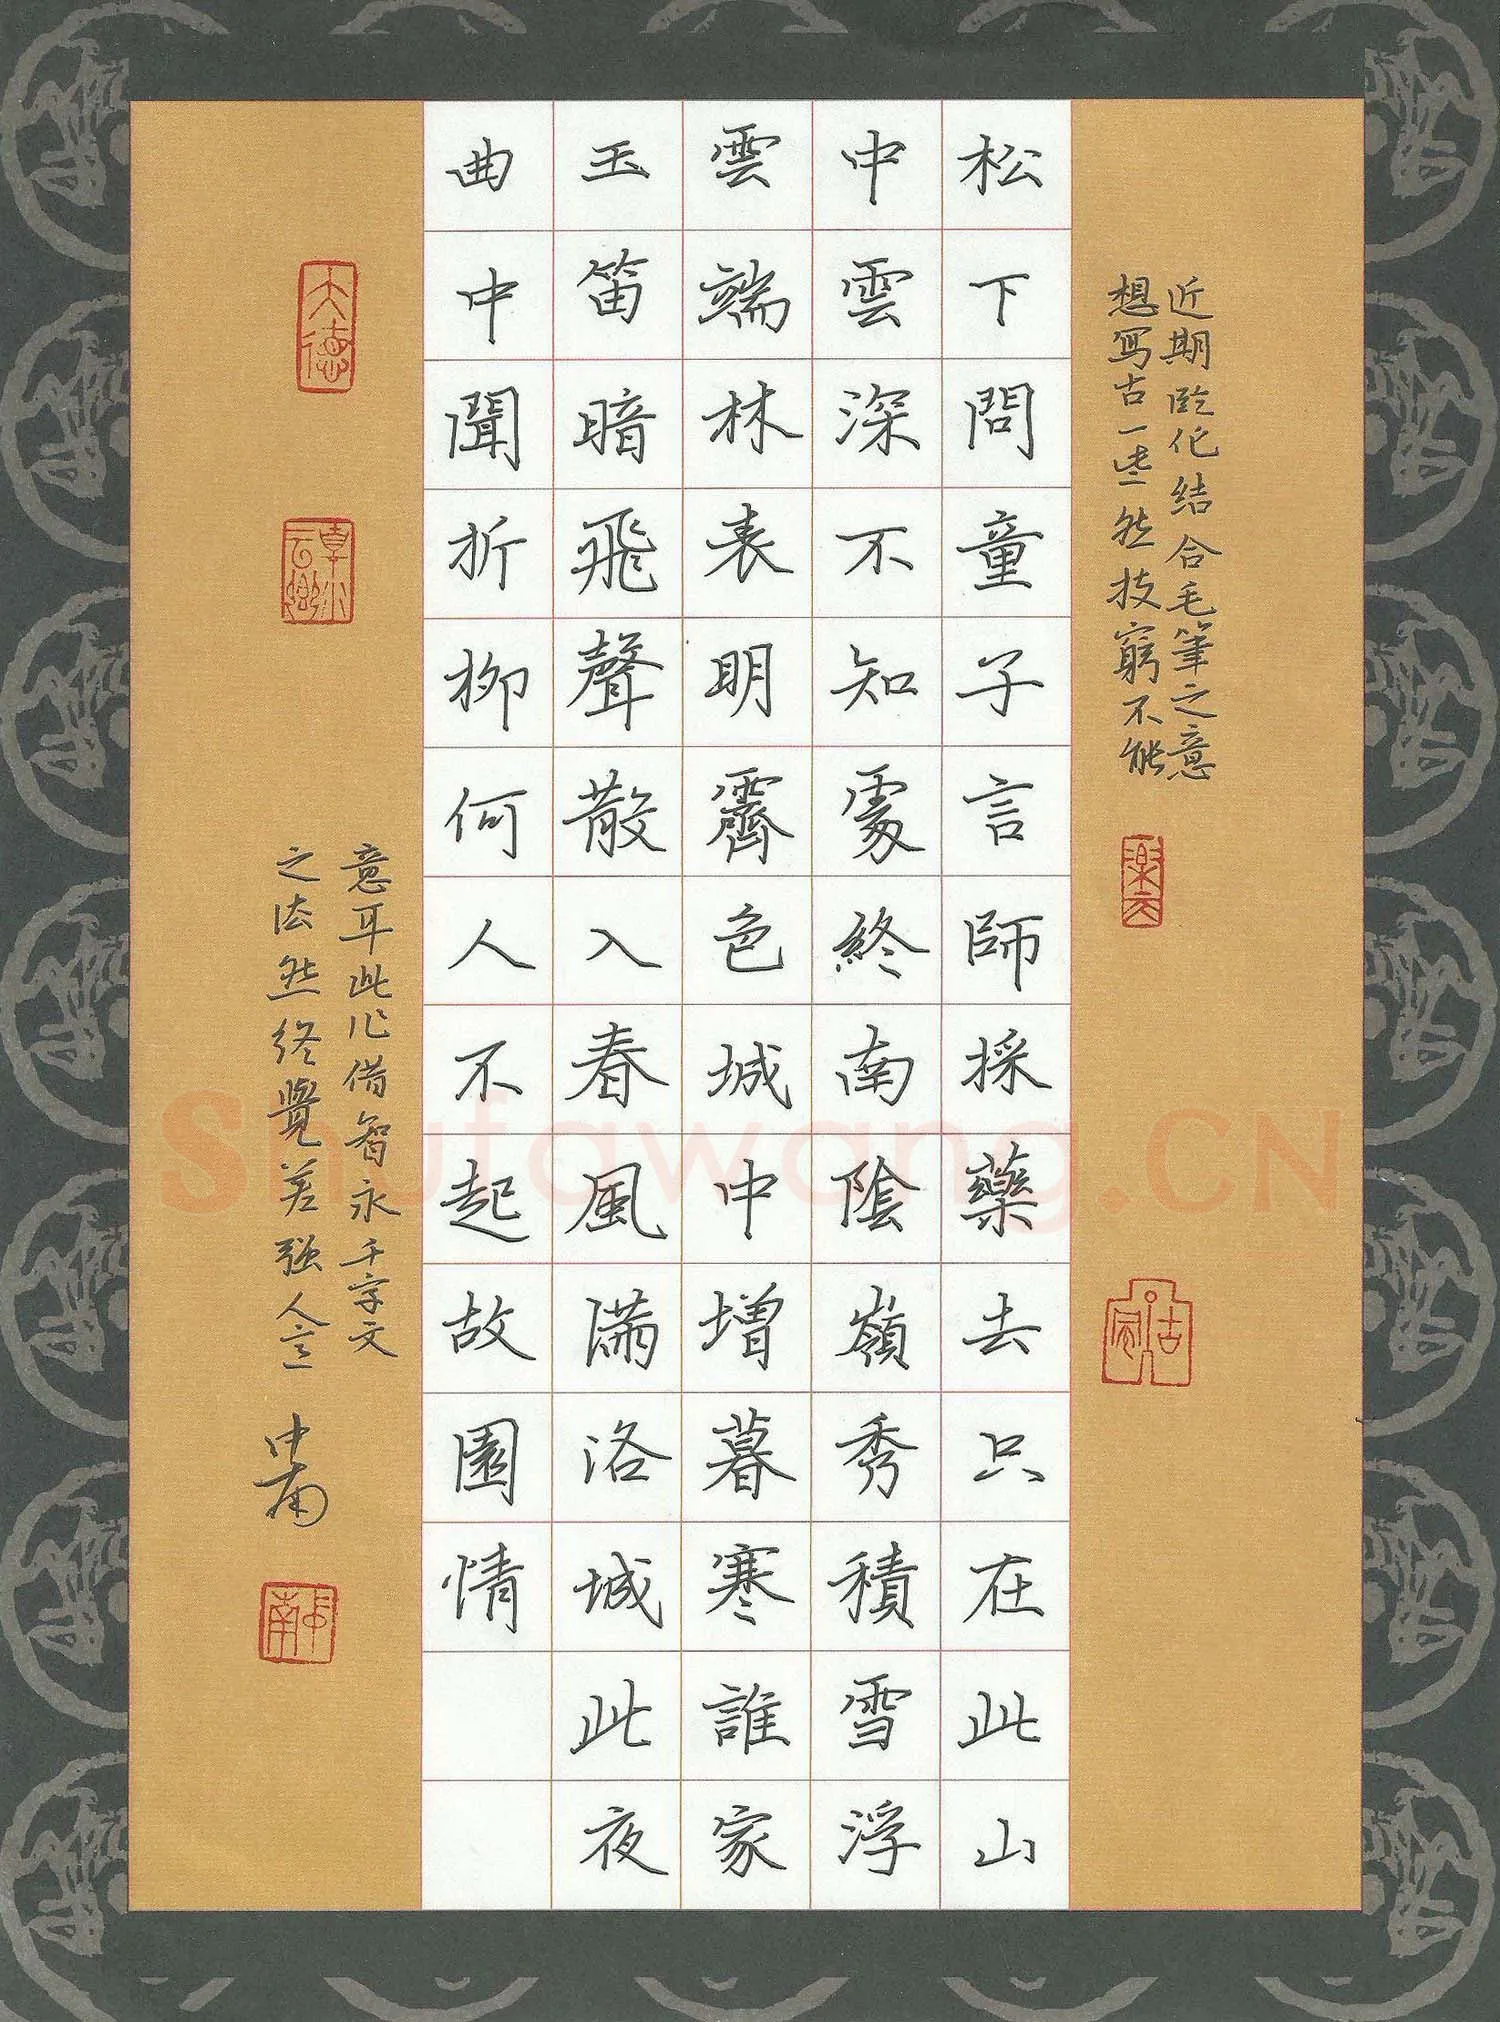 近期臨作结合毛筆之意
想写古一些然技窮不能
樂亦
松下問童子言師採藥去只在此山
中雲深不知處終南陰嶺秀積雪浮
雲端林表明霽色城中增暮寒誰家
玉笛暗飛聲散入春風滿洛城此夜
曲中聞折柳何人不起故園情
意耳此作借智永千字文
之法然终覺差强人意
中甫
大德
Shufawang.CN